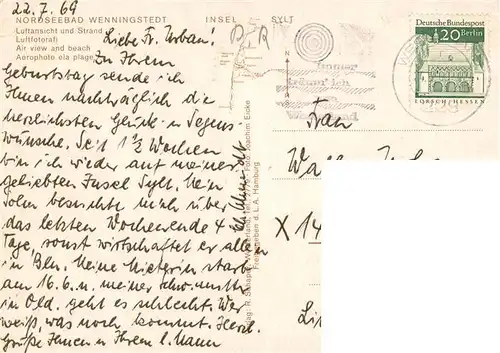 22.7.69
NORDSEEBAD WENNINGSTEDT INSEL SYLT
Luftansicht und Strand
Luftfoto(raf)
Air view and beach
Aerophoto e la plage
Liebe Fr. Urban!
Zu Ihrem
Geburtstag sende ich
Ihnen nachträglich die
herzlichsten Glück- u. Segens-
wünsche. Seit 1½ Wochen
bin ich wieder auf meiner
geliebten Insel Sylt. Mein
Sohn besuchte mich über
das letzten Wochenende 4
Tage, sonst wirtschaftet er allein
in Bln. Meine Mieterin starb
am 16.6. u. meiner Schw.
in Old. geht es schlecht. Wer
weiß, was noch kommt. Herzl.
Grüße Ihnen u. Ihrem l. Mann
Foto Joachim Eicke
Freigegeben d. L.A. Hamburg
immer
Deutsche Bundespost
20 Berlin
LORSCH/HESSEN
Frau
X 14